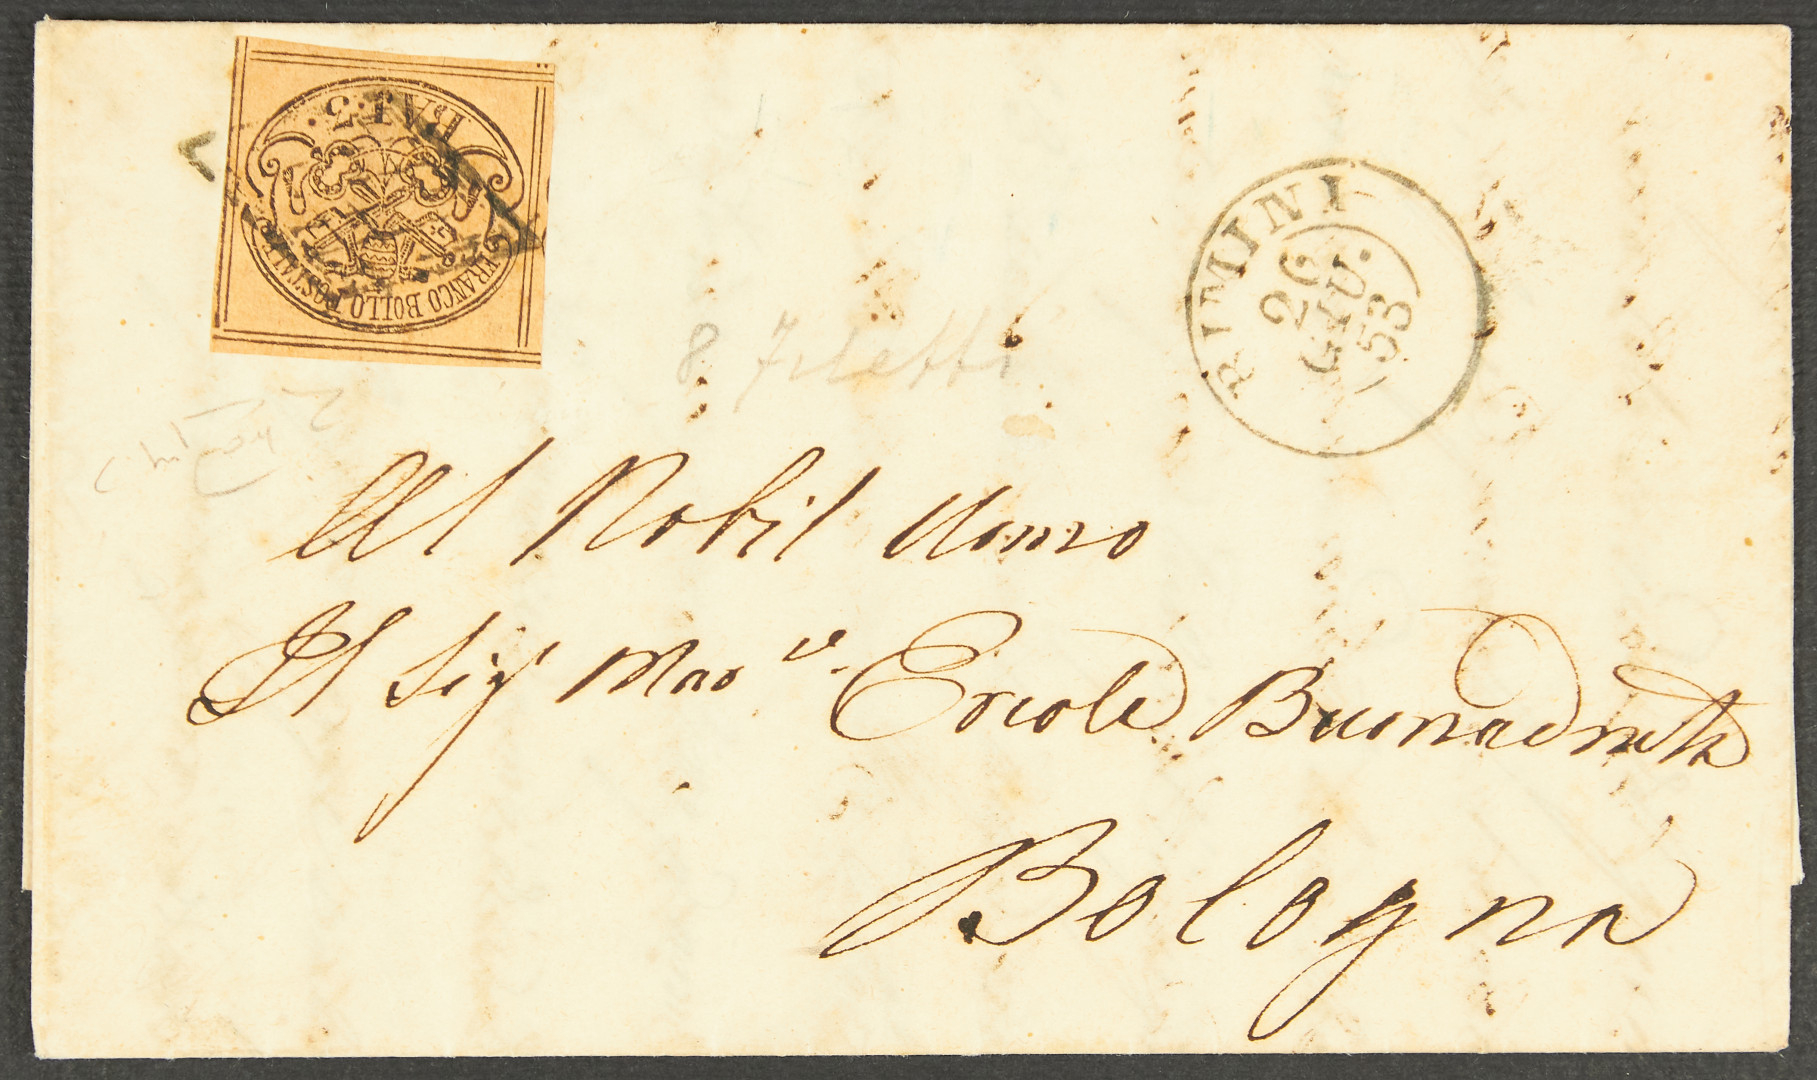 BAJ. 3.
FRANCO BOLLO POSTALE
RIMINI
26
GIU.
53
8 Filetti
Al Nobil Uomo
Il Sig.r Mar Ercole Buonadrata
Bologna